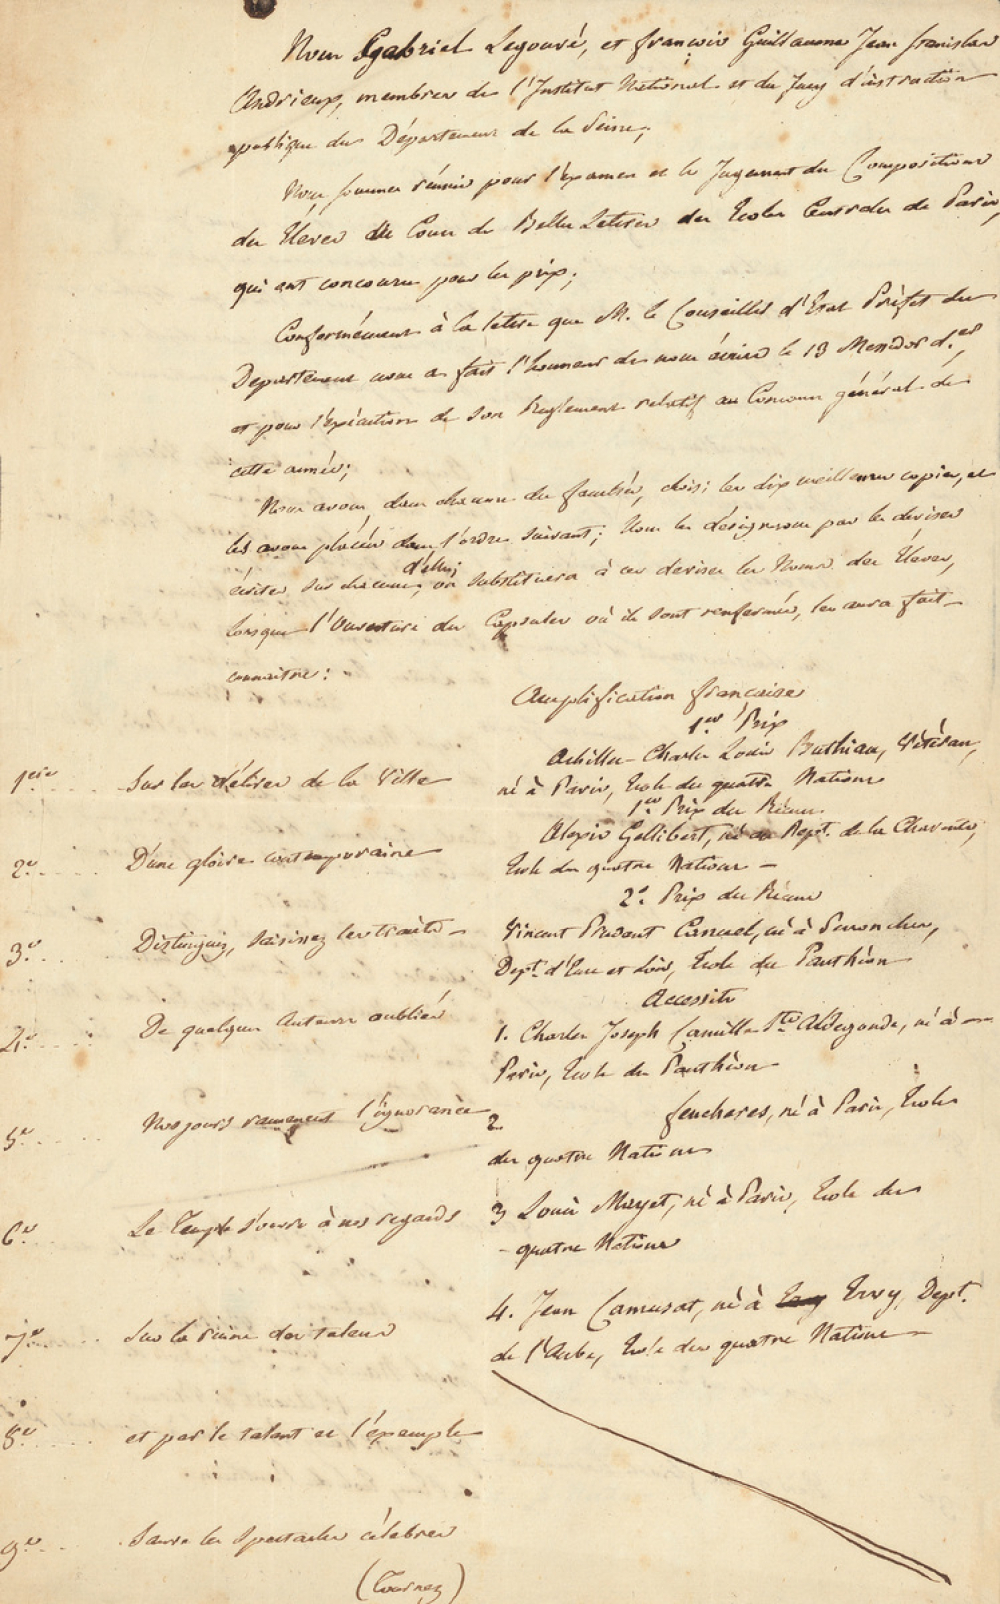 Nous Gabriel Legouvé, et françois Guillaume Jean Stanislas
Andrieux, membres de l'Institut National et du Jury d'instruction
publique du Département de la Seine,
Nous sommes réunis pour l'examen et le Jugement des Compositions
des Eleves du Cours de Belles Lettres des Ecoles Centrales de Paris,
qui ont concouru pour les prix;
Conformément à la lettre que M. le Conseiller d'Etat Préfet du
Departement nous a fait l'honneur de nous écrire le 13 Messidor d.er
et pour l'exécution de son Reglement relatif au Concours général de
cette année;
Nous avons, dans chacune des facultés, choisi les dix meilleures copies, et
les avons placées dans l'ordre suivant; Nous les désignerons par les devises
écrites sur chacune d'elles; on substituera à ces devises les Noms des Eleves,
lorsque l'Ouverture des Capsules où ils sont renfermés, les aura fait
connaitre:
Amplification française
1.er Prix
Achille-Charles Louis Buthiau, Vétéran,
1ere Sur les délices de la Ville
né à Paris, Ecole des quatre Nations
1.er Prix des Réaux
Alexis Gellibert, né au Dept. de la Charente,
2.e D'une gloire contemporaine
Ecole des quatre Nations
2.e Prix des Réaux
3.e Distinguez, saisissez les traits
Vincent Prudent Canuel, né à Senonches,
Dept. d'Eure et Loir, Ecole du Panthéon
Accessits
4.e De quelques Auteurs oubliés
1. Charles Joseph Camille Ste Aldegonde, né à
Paris, Ecole du Panthéon
5.e Nos jours ramenent l'ignorance
2. feucheres, né à Paris, Ecole
des quatre Nations
6.e Le Temple s'ouvre à nos regards
3 Louis Mayet, né à Paris, Ecole des
quatre Nations
4. Jean Camusat, né à Ervy, Dept.
7.e Sur la ruine des talens
de l'Aube, Ecole des quatre Nations
8.e et par le talent et l'exemple
9.e Dans les spectacles célebres
(Tournez)